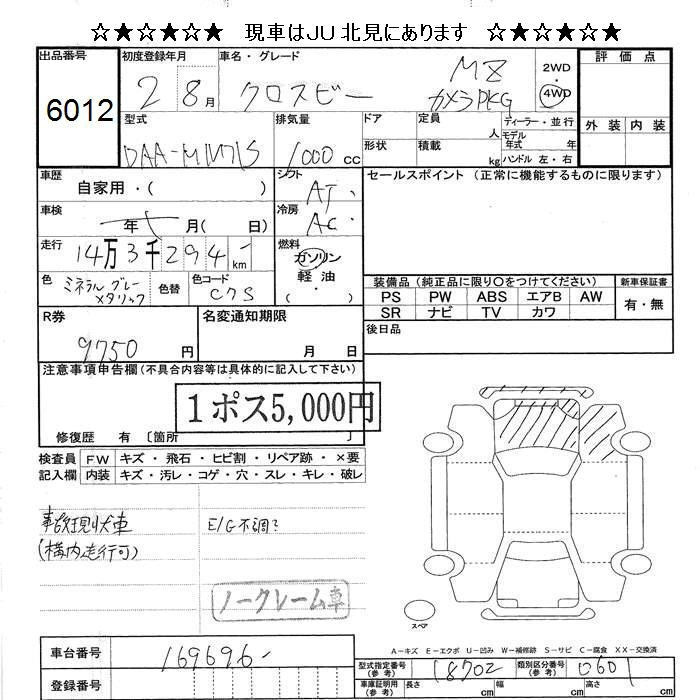 ☆★☆★☆★ 現車はJU北見にあります ☆★☆★☆★
出品番号 6012
初度登録年月 2 8月
車名・グレード クロスビー MZ カメラPKG
2WD 4WD
評価点
外装 内装
型式 DAA-MN71S
排気量 1000 cc
ドア 形状
定員 人
積載 kg
ディーラー・並行
モデル年式 年
ハンドル 左・右
車歴 自家用・( )
シフト AT
セールスポイント (正常に機能するものに限ります)
車検 年 月( 日)
冷房 AC
走行 14万3千294km
燃料 ガソリン 軽油 ( )
色 ミネラルグレーメタリック
色替
色コード C7S
装備品 (純正品に限り〇をつけてください)
PS PW ABS エアB AW
SR ナビ TV カワ
新車保証書 有・無
R券 9750円
名変通知期限 月 日
後日品
注意事項申告欄(不具合内容等は具体的に記入して下さい)
1ポス5,000円
修復歴 有 〔箇所 〕
検査員記入欄
FW キズ・飛石・ヒビ割・リペア跡・×要
内装 キズ・汚レ・コゲ・穴・スレ・キレ・破レ
事故現状車
(構内走行可)
E/G不調?
ノークレーム車
スペア
A-キズ E-エクボ U-凹み W-補修跡 S-サビ C-腐食 XX-交換済
車台番号 169696-
登録番号
型式指定番号(参考) 18702
類別区分番号(参考) 0601
車庫証明用(参考) 長さ cm 幅 cm 高さ cm